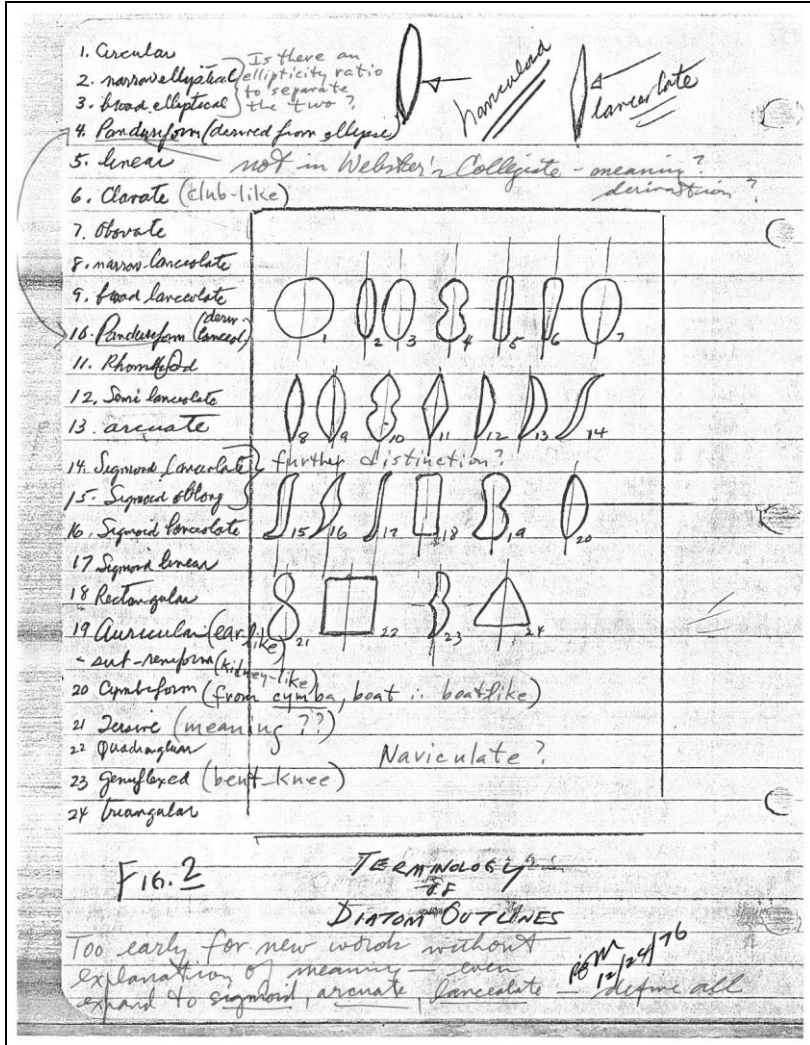 1. Circular
2. narrow elliptical
3. broad elliptical
Is there an
ellipticity ratio
to separate
the two?
lanceolate
4. Panduriform (derived from ellipse)
5. linear
not in Webster's Collegiate - meaning?
derivation?
6. Clavate (club-like)
7. Obovate
8. narrow lanceolate
9. broad lanceolate
10. Panduriform
11. Rhomboid
12. Semi lanceolate
13. arcuate
14. Sigmoid lanceolate
further distinction?
15. Sigmoid oblong
16. Sigmoid lanceolate
17 Sigmoid linear
18 Rectangular
19 Auricular (ear like)
- sub-reniform (kidney-like)
20 Cymbiform (from cymba, boat ∴ boatlike)
21 (meaning ??)
22 Quadrangular
23 Genuflexed (bent-knee)
24 triangular
1 2 3 4 5 6 7
8 9 10 11 12 13 14
15 16 17 18 19 20
21 22 23 24
Naviculate?
FIG. 2
TERMINOLOGY
OF
DIATOM OUTLINES
Too early for new words without
explanation of meaning — even
expand to sigmoid, arcuate, lanceolate — define all
12/24/76